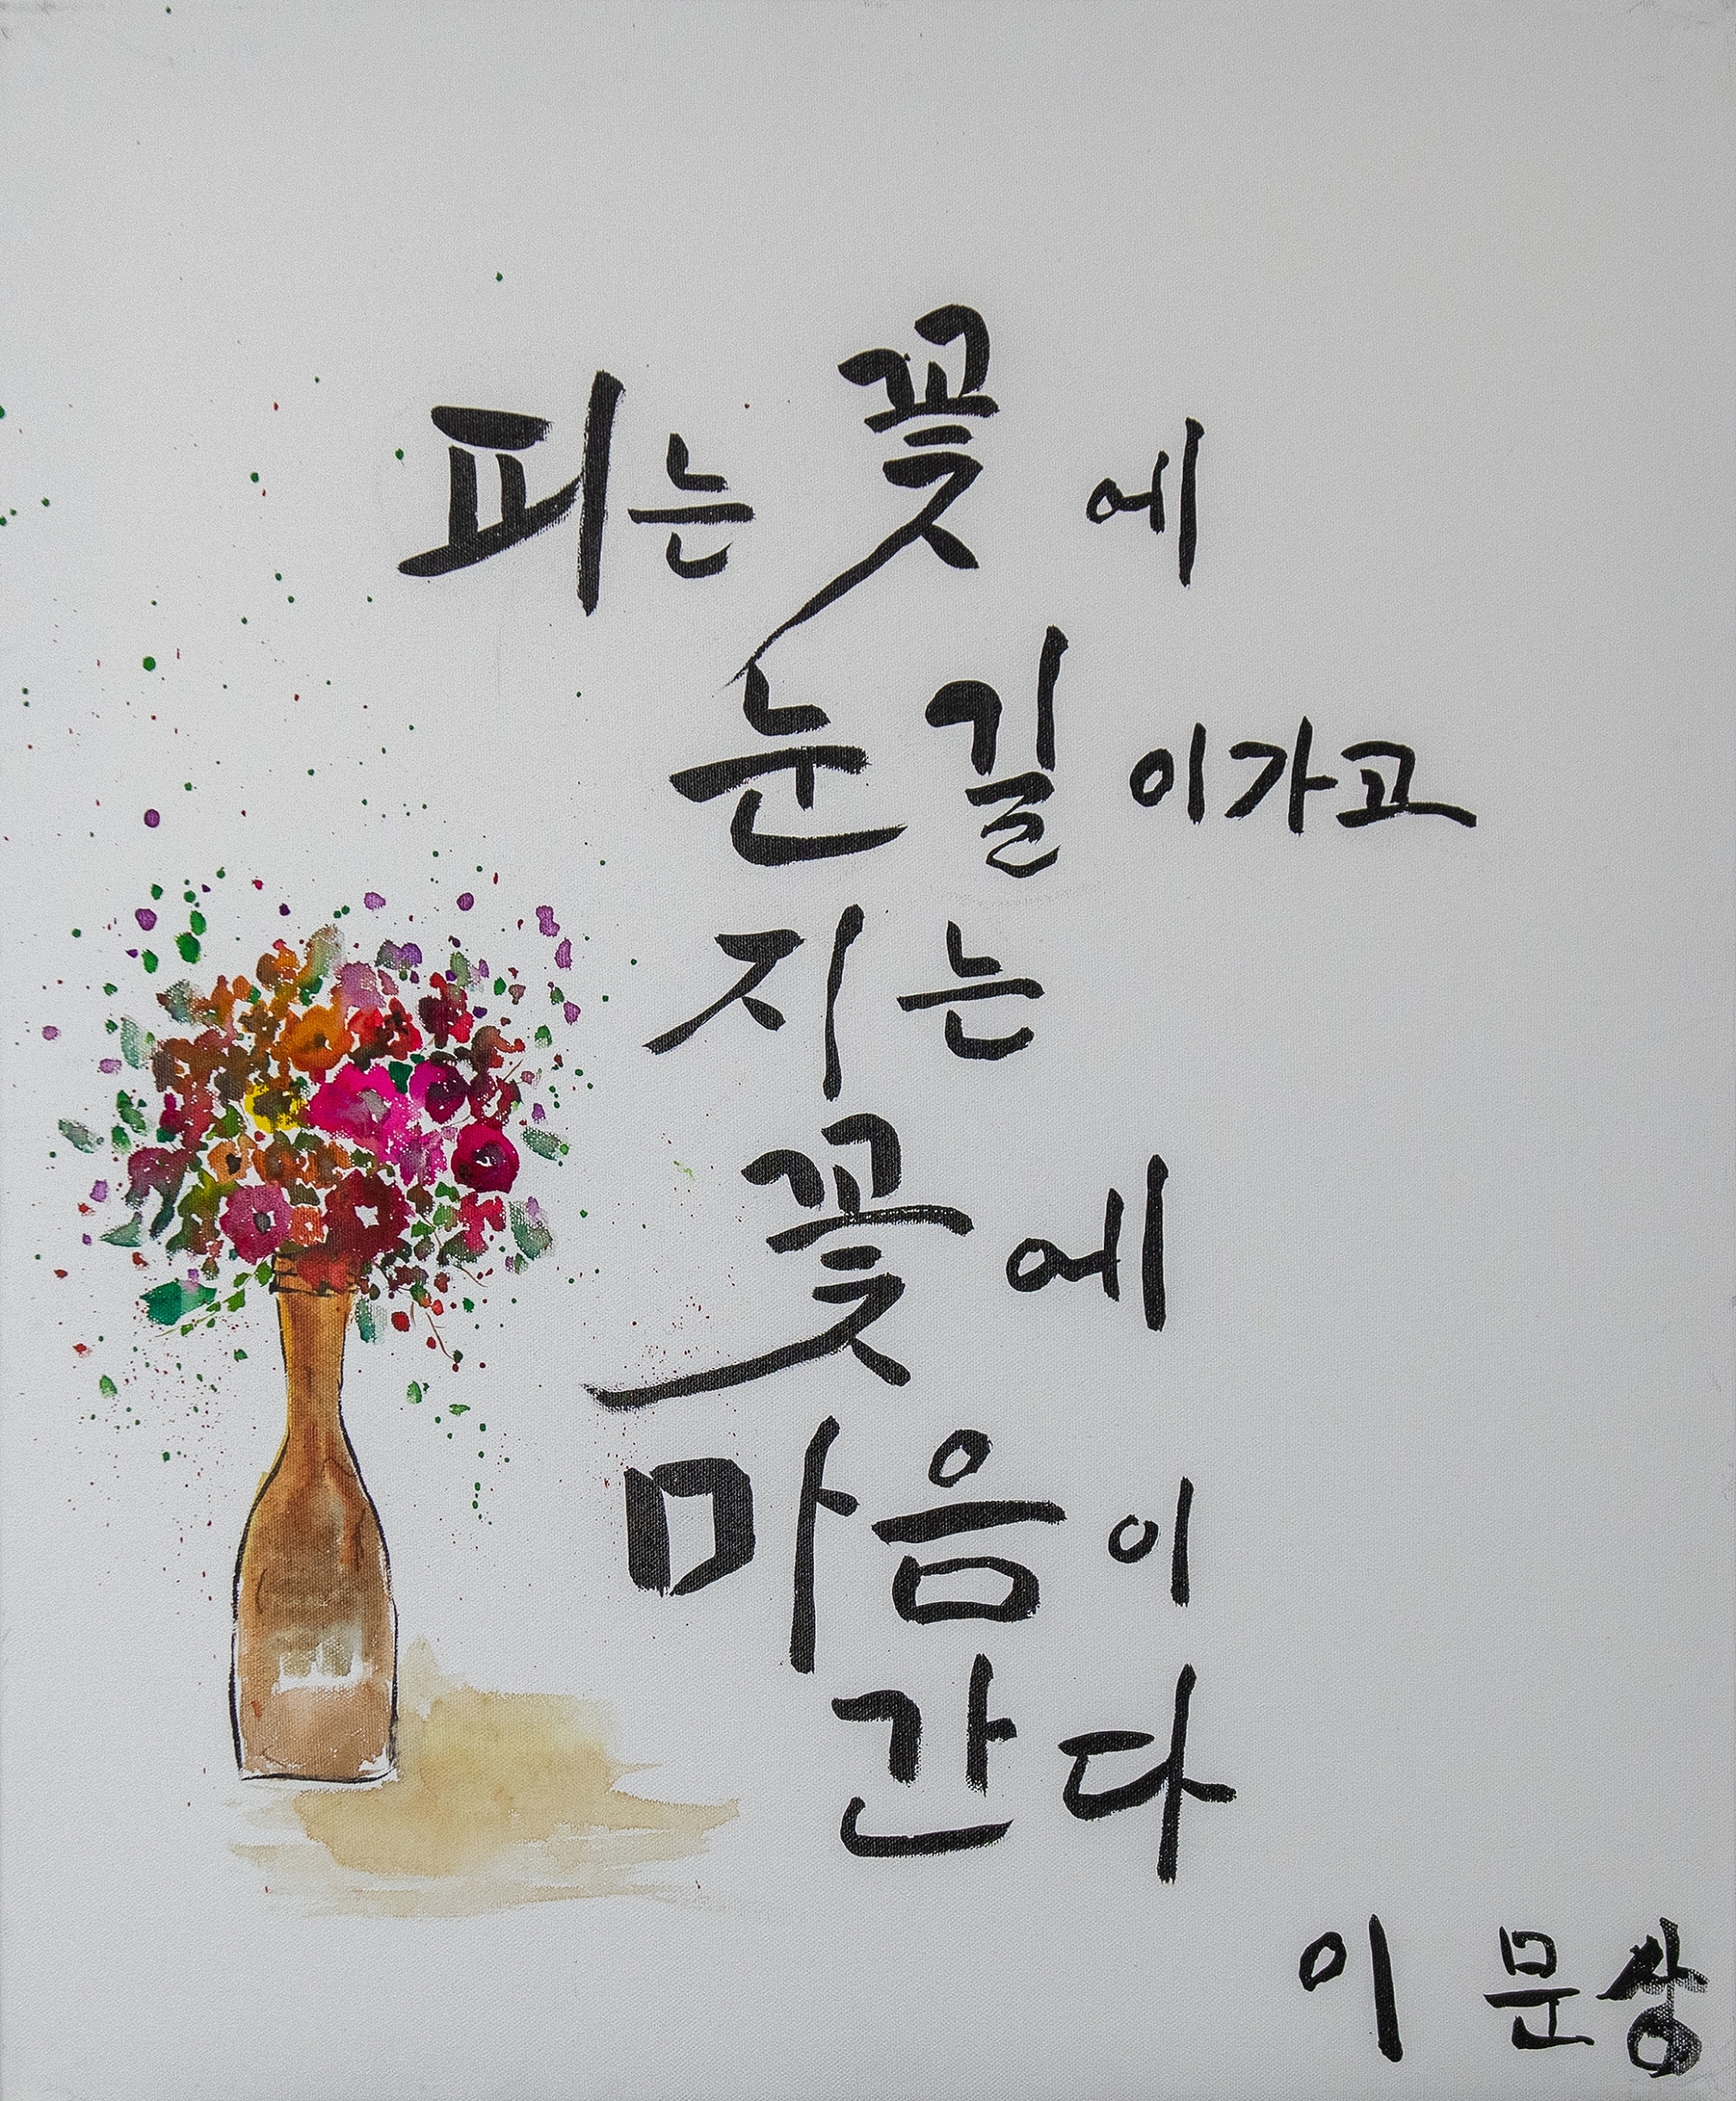 피는 꽃에
눈길이가고
지는
꽃에
마음이
간다
이 문상